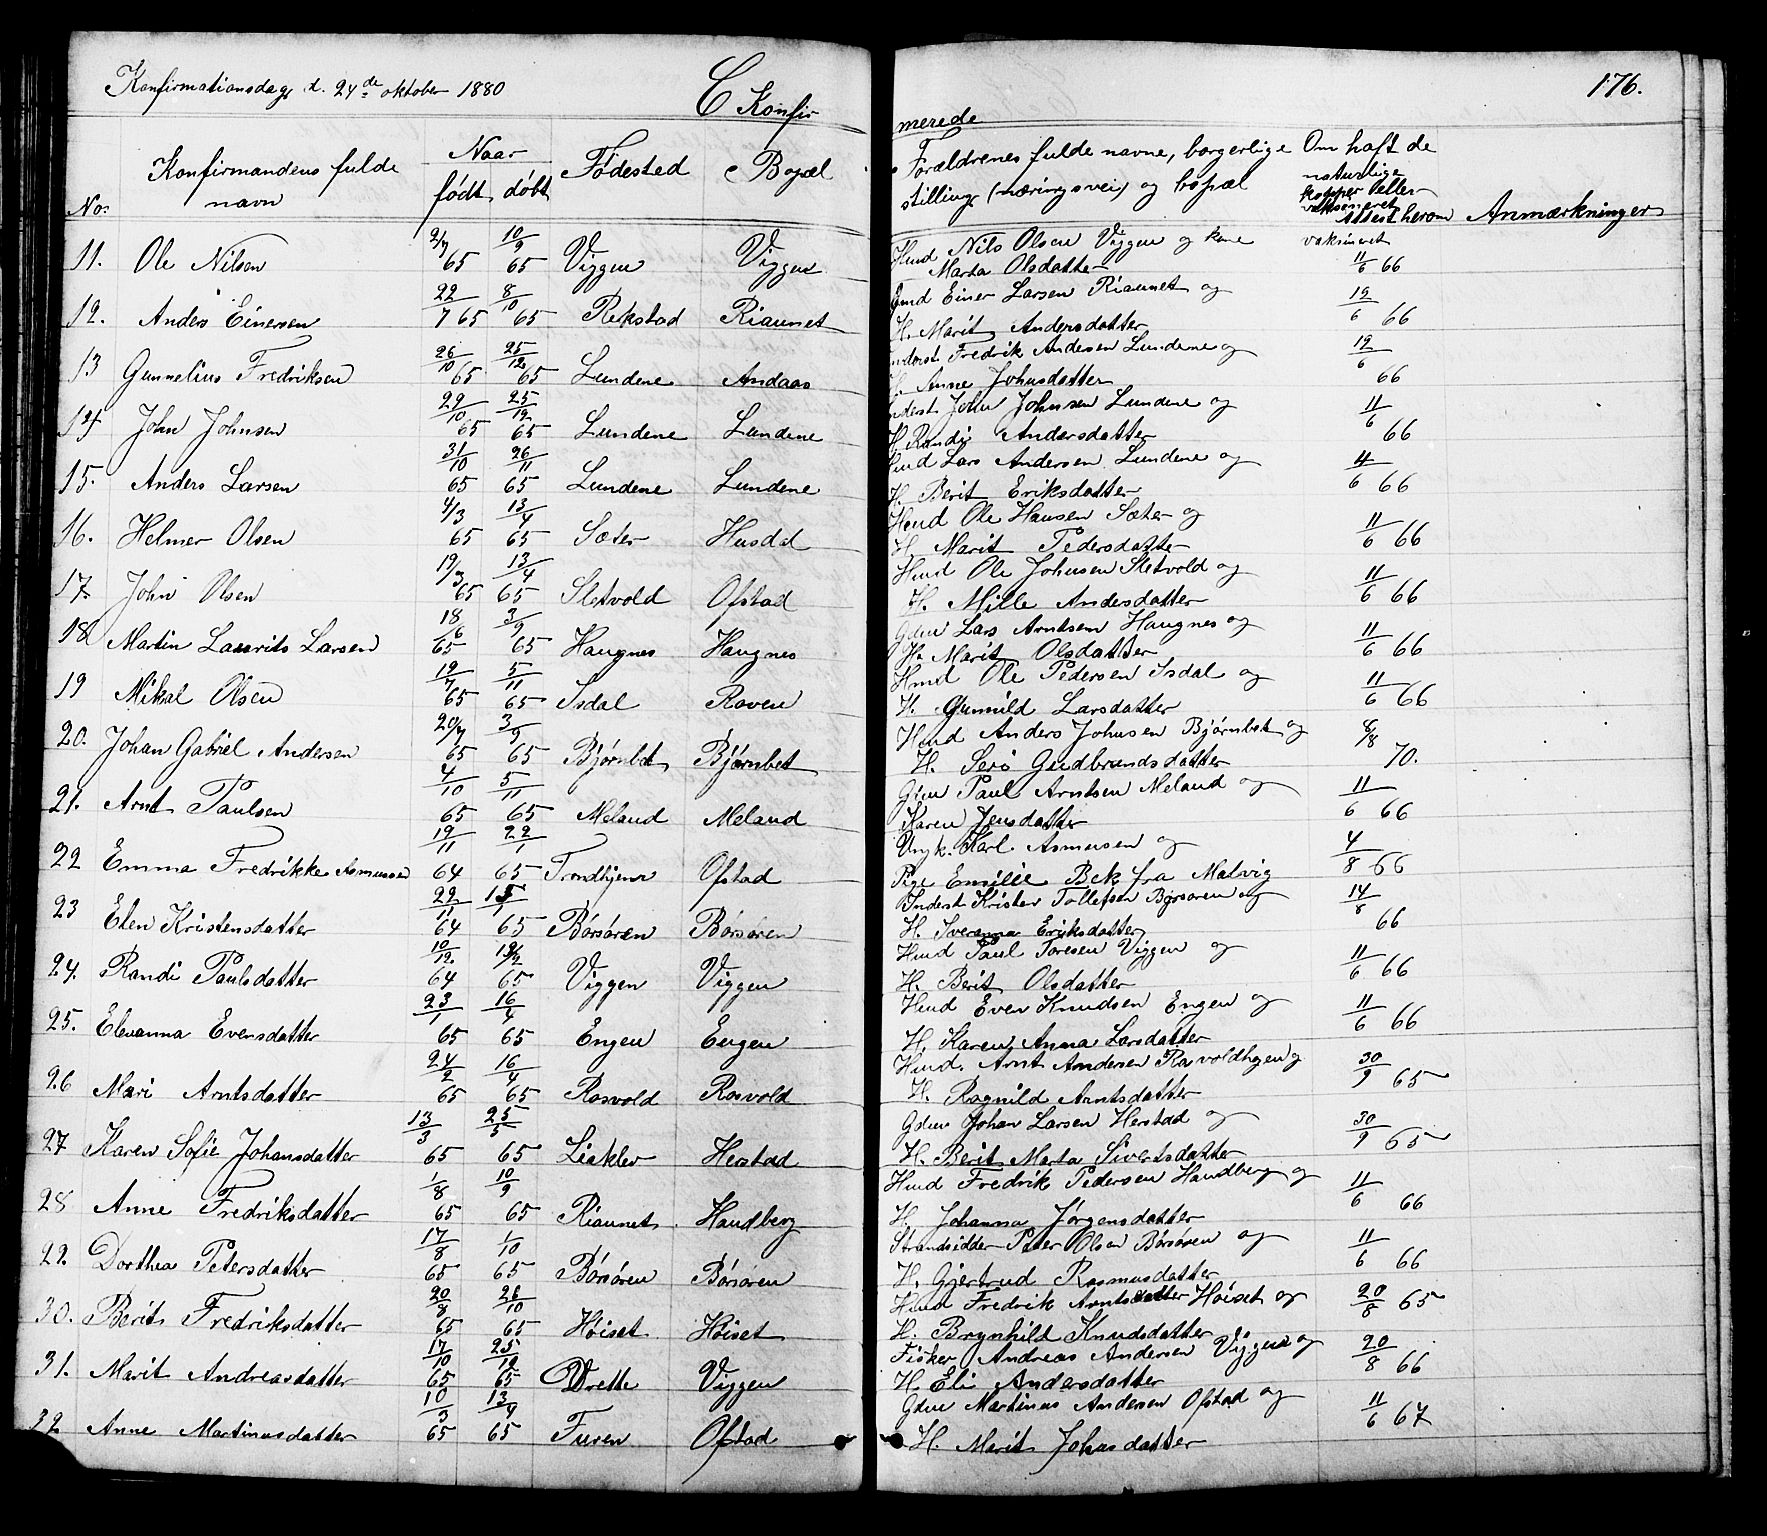 Konfirmationsdag d. 24de oktober 1880
C Konfir
merede
176.
No: Konfirmandens fulde navn Naar født døbt Fødested Bopæl Forældrenes fulde navne, borgerlige stilling (næringsvei) og bopæl Om haft de naturlige kopper eller vaksineret Attest herom Anmærkninger
11. Ole Nilsen 2/7 65 10/9 65 Viggen Viggen Hmd Nils Olsen Viggen og kone vaksineret
Marta Olsdatter 11/6 66
12. Anders Einersen 22/7 65 8/10 65 Rekstad Riaunet Gmd Einer Larsen Riaunet og 19/6 66
H. Marit Andersdatter
13 Gunnelius Fredriksen 26/10 65 25/12 65 Lundene Andaas Inderst Fredrik Andersen Lundene og 19/6 66
H. Anne Johnsdatter
14 John Johnsen 29/10 65 25/12 65 Lundene Lundene Inderst John Johnsen Lundene og 11/6 66
H. Randi Andersdatter
15. Anders Larsen 31/10 65 26/11 65 Lundene Lundene Hmd Lars Andersen Lundene og 11/6 66
H. Berit Eriksdatter
16. Helmer Olsen 4/3 65 13/4 65 Sæter Husdal Hmd Ole Hansen Sæter og 11/6 66
H. Marit Pedersdatter
17. John Olsen 19/3 65 13/4 65 Sletvold Ofstad Hmd Ole Johnsen Sletvold og 11/6 66
H. Mille Andersdatter
18 Martin Laurits Larsen 18/6 65 3/9 65 Haugnes Haugnes Gdm Lars Arntsen Haugnes og 11/6 66
H. Marit Olsdatter
19 Mikal Olsen 19/7 65 5/11 65 Isdal Raven Hmd Ole Pedersen Isdal og 11/6 66
H. Gunnild Larsdatter
20. Johan Gabriel Andersen 20/7 65 3/9 65 Bjørnbet Bjørnbet Hmd Anders Johnsen Bjørnbek og 6/8 70.
H. Seri Gudbrandsdatter
21. Arnt Paulsen 4/10 65 5/11 65 Meland Meland Gdm Paul Arntsen Meland og 11/6 66
Karen Jensdatter
22 Emma Fredrikke Asmussen 19/11 64 22/1 65 Trondhjem Ofstad Ungk. Karl Asmusen og 4/8 66
Pige Emilie Bek fra Malvig
23 Elen Kristensdatter 22/11 64 15/1 65 Børsøren Børsøren Inderst Kristen Tollefsen Børsøren og 14/8 66
H. Iveranna Eriksdatter
24. Randi Paulsdatter 10/12. 64 12/2 65 Viggen Viggen Hmd Paul Toresen Viggen og 11/6 66
H. Berit Olsdatter
25. Elevanna Eversdatter 23/1 65 16/4 65 Engen Engen Hmd Even Knudsen Engen og 11/6 66
H. Karen Anna Larsdatter
26 Mari Arntsdatter 24/2 65 16/4 65 Rosvold Rosvold Hmd. Arnt Andersen Rosvoldhagen og 30/9 65
H. Ragnild Arntsdatter
27 Karen Sofie Johansdatter 13/3 65 25/5 65 Liaklev Herstad Gdm Johan Larsen Herstad og 30/9 65
H. Berit Marta Sivertsdatter
28 Anne Fredriksdatter 1/8 65 10/9 65 Riaunet Handberg Hmd Fredrik Pedersen Handberg og 11/6 66
H. Johanna Jørgensdatter
29. Dorthea Petersdatter 17/8 65 1/10 65 Børsøren Børsøren Strandsidder Peter Olsen Børsøren og 11/6 66
H. Gjertrud Rasmusdatter
30. Berit Fredriksdatter 20/8 65 26/10 65 Høiset Høiset Hmd Fredrik Arntsdatter Høiset og 20/8 65
H. Brynhild Knudsdatter
31. Marit Andreasdatter 17/10 65 25/12 65 Vrette Viggen Fisker Andreas Andersen Viggen og 20/8 66
H. Eli Andersdatter
32 Anne Martinusdatter 10/3 65 13/4 65 Furen Ofstad Gdm Martinus Andersen Ofstad og 11/6 67
H. Marit Johnsdatter